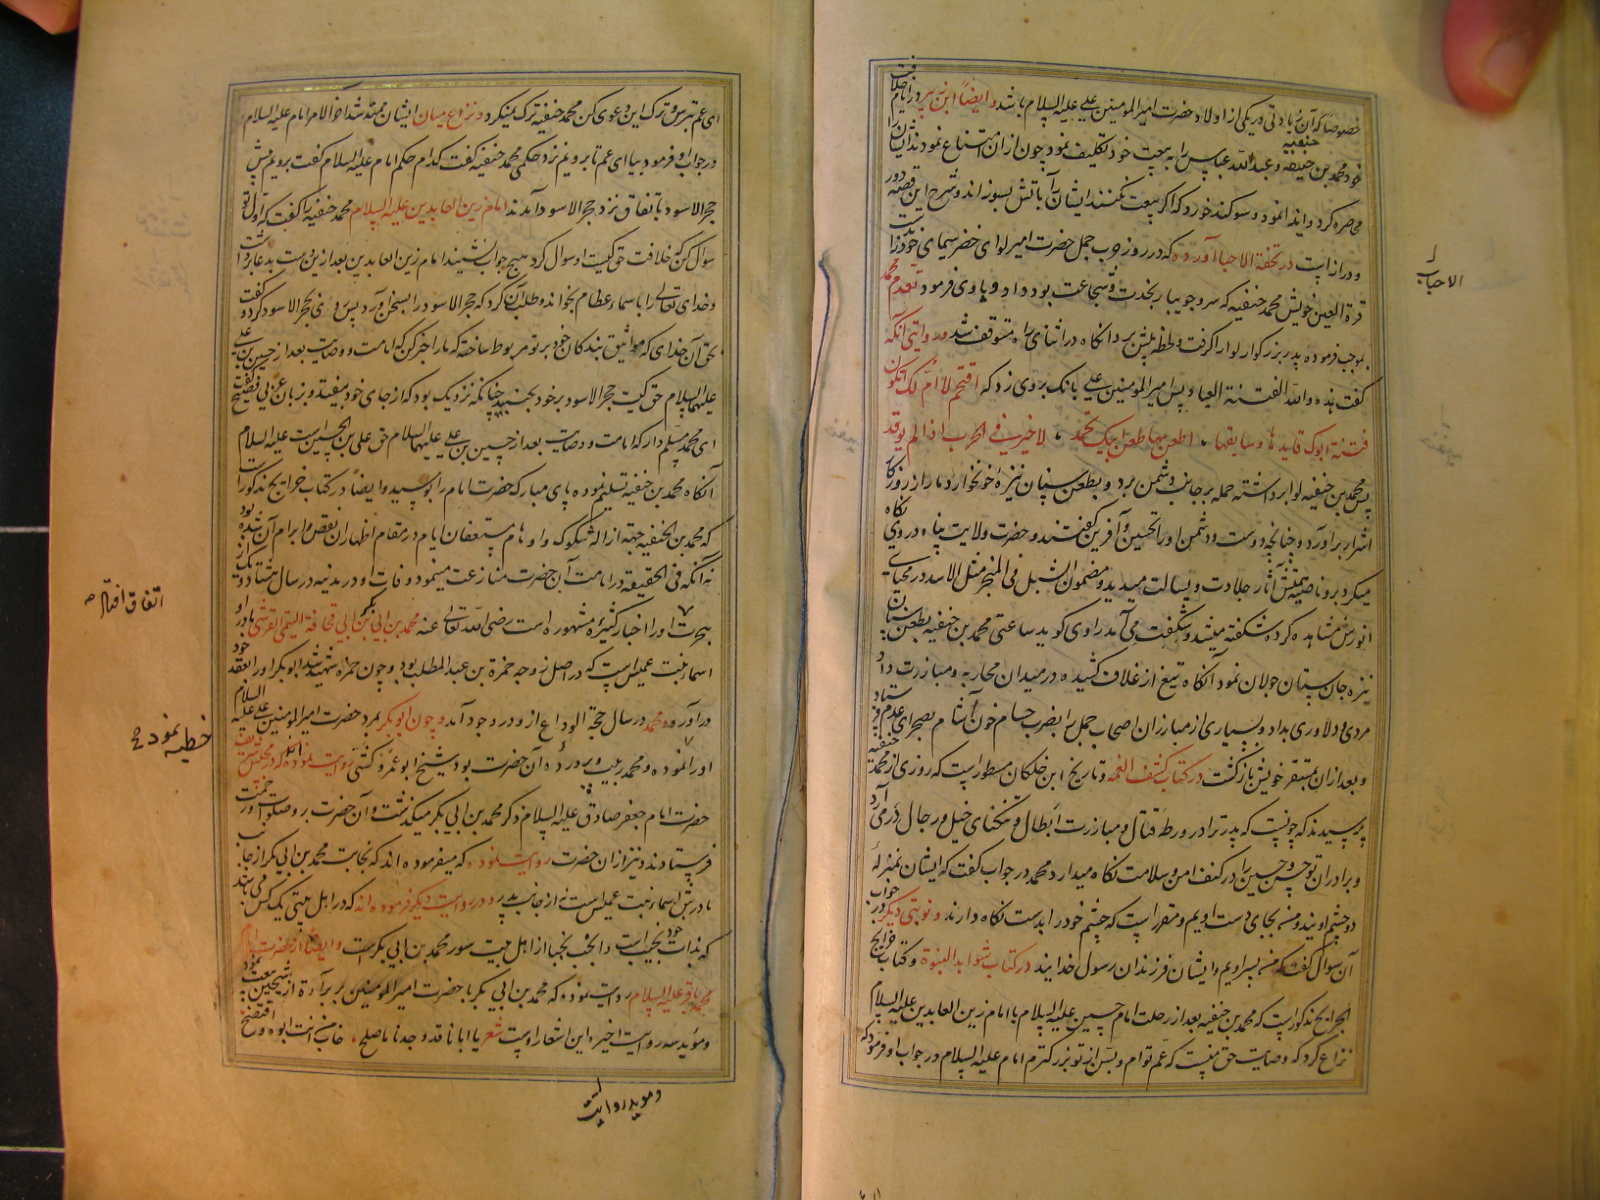 خصوصا که آن زیادتی در یکی از اولاد حضرت امیرالمومنین علی علیه السلام باشد و ایضا ابن زبیر در ایام خلافت
خود محمد بن حنفیه و عبدالله عباس را به بیعت خود تکلیف نمود چون ازان امتناع نمودند ایشان را
محاصره کرد و ایذا نمود و سوگند خورد که اگر بیعت نکنند ایشان را بآتش بسوزاند و شرح این قصه دور
و دراز است در تحفة الاحبا آورده که در روز حرب جمل حضرت امیر لوای خضر سیمای خود را
قرة العین خویش محمد حنفیه که سرو جویبار نجدت و شجاعت بود داد و با وی فرمود تقدم محمد
بموجب فرموده پدر بزرگوار لوا را گرفت و لحظه پیش برد آنگاه در اثنای راه متوقف شد و روایتی آنکه
گفت هذه والله الفتنة العمیا پس امیرالمومنین علی بانک بروی زد که اقتحم لا ام لک اتکون
فتنة ابوک قایدها و سایقها اطعن بها طعن ابیک تحمد لا خیر فی الحرب اذا لم یوقد
پس محمد بن حنفیه لوا برداشته حمله بر جانب دشمن برد و بطعن سنان نیزه خونخوار دمار از روزگار
اشرار برآورد چنانچه دوست و دشمن او را تحسین و آفرین گفتند و حضرت ولایت پناه در وی نگاه
میکرد و بر ناصیه اش آثار جلادت و بسالت میدید و مضمون الشبل فی المخبر مثل الاسد در محیای
انورش مشاهده کرد و شگفته میشد و شگفت می آمد راوی گوید ساعتی محمد بن حنفیه بطعن سنان
نیزه جان ستان جولان نمود آنگاه تیغ از غلاف کشیده در میدان محاربه و مبارزت داد
مردی و دلاوری بداد و بسیاری از مبارزان اصحاب جمل را بضرب حسام خون آشام بصحرای عدم فرستاد
و بعد ازان بمستقر خویش بازگشت در کتاب کشف الغمه و تاریخ ابن خلکان مسطور است که روزی از محمد حنفیه
پرسیدند که چونست که پدر ترا در ورطه قتال و مبارزت ابطال و تنگنای خیل و رجال در می آرد
و برادران تو حسن و حسین را در کنف امن و سلامت نگاه میدارد محمد در جواب گفت که ایشان بمنزله
دو چشم اویند و من بجای دست اویم و مقرر است که چشم خود را بدست نگاه دارند و نوبتی دیگر در جواب
آن سوال گفت که من پسر اویم و ایشان فرزندان رسول خدایند در کتاب شواهد النبوة و کتاب خرایج
الجرایح مذکور است که محمد بن حنفیه بعد از رحلت امام حسین علیه السلام با امام زین العابدین علیه السلام
نزاع کرد که وصایت حق منست که عم توام و بسن از تو بزرگترم امام علیه السلام در جواب او فرمود که
الاحباب
ای عم بترس و ترک این دعوی کن محمد حنفیه ترک نمیکرد و نزاع میان ایشان ممتد شد آخر الامر امام علیه السلام
در جواب او فرمود بیا ای عم تا برویم نزد حکمی محمد حنفیه گفت کدام حکم امام علیه السلام گفت برویم پیش
حجر الاسود باتفاق نزد حجر الاسود آمدند امام زین العابدین علیه السلام محمد حنفیه را گفت که اول تو
سوال کن که خلافت حق کیست او سوال کرد هیچ جواب نشنید امام زین العابدین بعد ازین دست بدعا برداشت
و خدای تعالی را باسماء عظام بخواند و طلب آن کرد که حجر الاسود را بسخن آورد پس روی بحجر الاسود کرد و گفت
بحق آن خدای که مواثیق بندگان خود بر تو مربوط ساخته که ما را خبر کن که امامت و وصایت بعد از حسین بن علی
علیهما السلام حق کیست حجر الاسود بر خود بجنبید چنانکه نزدیک بود که از جای خود بیفتد و بزبان عربی فصیح گفت
ای محمد مسلم دار که امامت و وصایت بعد از حسین بن علی علیهما السلام حق علی بن الحسین است علیه السلام
آنگاه محمد بن حنفیه تسلیم نموده پای مبارک حضرت امام را بوسید و ایضا در کتاب خرایج مذکور است
که محمد بن الحنفیه جهة ازاله شکوک و اوهام مستضعفان ایام در مقام اظهار ان نقص و ابرام آن شده بود
نه آنکه فی الحقیقه در امامت آن حضرت منازعت مینمود وفات و در مدینه در سال هشتاد و یک از
هجرت او را اخبار کثیره مشهوره است رضی الله تعالی عنه محمد بن ابی بکر بن ابی قحافة التیمی القرشی مادر او
اسماء بنت عمیس است که در اصل زوجه حمزة بن عبدالمطلب بود و چون حمزه شهید شد ابوبکر او را بعقد خود
درآورد و محمد در سال حجة الوداع ازو در وجود آمد و چون ابوبکر بمرد حضرت امیرالمومنین علی علیه السلام
او را نموده و محمد ربیب و پرورده آن حضرت بود شیخ ابو عمرو کشی روایت نموده که در مجلس شریف
حضرت امام جعفر صادق علیه السلام ذکر محمد بن ابی بکر میگذشت و آن حضرت برو صلوات و رحمت
فرستادند و نیز ازان حضرت روایت نموده که میفرموده اند که نجابت محمد بن ابی بکر از جانب
مادرش اسماء بنت عمیس است نه از جانب پدر و در روایت دیگر فرموده اند که در اهل بیتی یک کس می باشد
که بذات خود نجیب است و انجب نجبا از اهل بیت سوء محمد بن ابی بکر است و ایضا از حضرت امام
محمد باقر علیه السلام روایت نموده که محمد بن ابی بکر با حضرت امیرالمومنین بر براءة از شیخین بیعت نمود
و مؤید سه روایت اخیره این اشعار اوست شعر یا ابانا قد وجدنا ما صلح خاب من انت ابوه و افتضح
خطبه نمود
و موید روایت